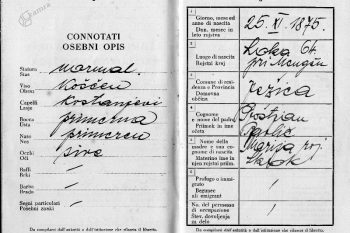 Kamra
CONNOTATI
OSEBNI OPIS
Statura
Stas
normal.
Viso
Obraz
Koščen
Capelli
Lasje
Kostanjevi
Bocca
Usta
primerna
Naso
Nos
primeren
Occhi
Oči
sive
Baffi
Brki
/
Barba
Brada
/
Segni particolari
Posebni znaki
/
Da compilarsi dall'autorità o dall'istituzione che rilascia il libretto.
1
Giorno, mese ed
anno di nascita
Dan, mesec in
leto rojstva
25. XI. 1875.
2
Luogo di nascita
Rojstni kraj
Loka št.
pri Mengšu
3
Comune di resi-
denza e Provincia
Domovna
občina
Ježica
4
Cognome
e nome del padre
Priimek in ime
očeta
Boštjan
Pavlič
5
Nome della
madre e suo co-
gnome di nascita
Materino ime in
njen rojstni priim.
Marija roj.
6
Profugo o immi-
grato
Begunec
ali emigrant
/
7
No. del permesso
di occupazione
Štev. dovoljenja
in delo
/
Da compilarsi dall'autorità o dall'istituzione che rilascia il libretto.